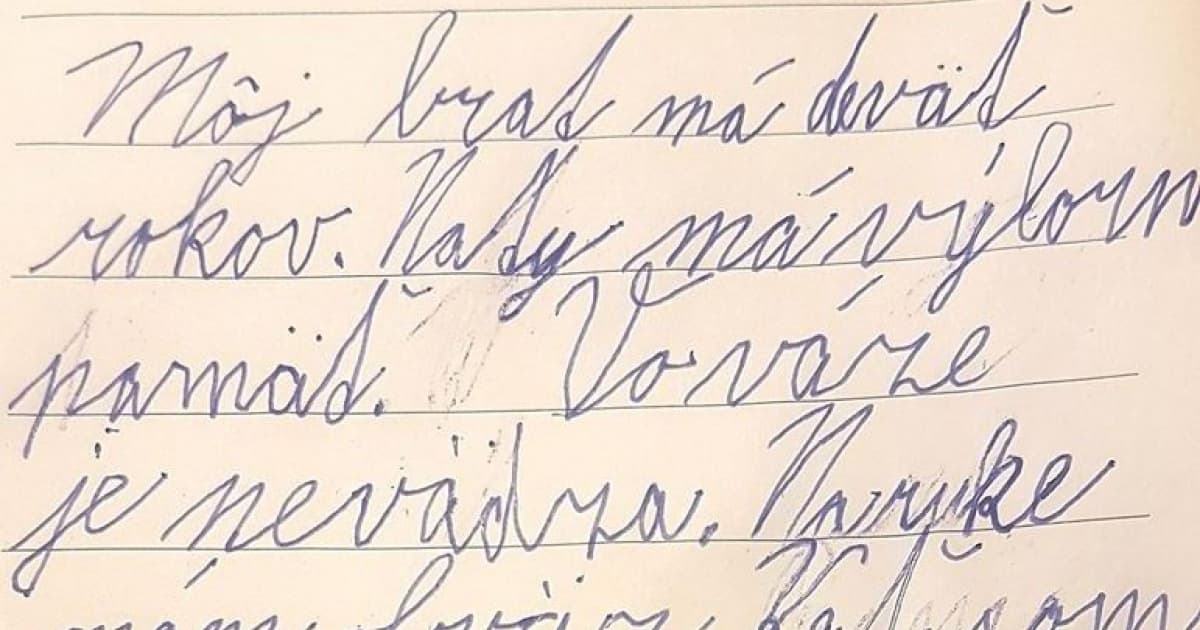 Môj brat má deväť
rokov. Naty má výlorn
pamäť. Vo váze
je nevädza. Na ruke
mám